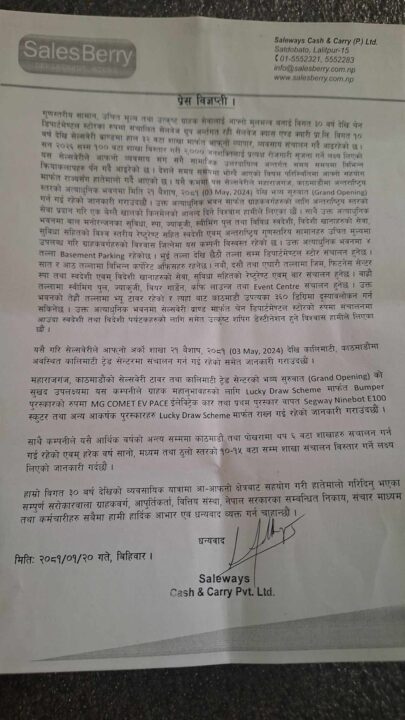 SalesBerry
DEPARTMENT STORE
Saleways Cash & Carry (P.) Ltd.
Satdobato, Lalitpur-15
01-5552321, 5552283
info@salesberry.com.np
www.salesberry.com.np
प्रेस विज्ञप्ती ।
गुणस्तरीय सामान, उचित मूल्य तथा उत्कृष्ट ग्राहक सेवालाई आफ्नो मूलमन्त्र बनाई विगत ३० बर्ष देखि चेन
डिपार्टमेण्टल स्टोरका रुपमा संचालित सेलवेज ग्रुप अर्न्तगत रही सेलवेज क्यास एण्ड क्यारी प्रा.लि. विगत १०
बर्ष देखि सेल्सबेरी ब्राण्डमा हाल १२ वटा शाखा मार्फत आफ्नो व्यापार, व्यवसाय संचालन गर्दै आइरहेको छ ।
सन २०२६ सम्म १०० वटा शाखा विस्तार गरी २,००० जनशक्तिलाई प्रत्यक्ष रोजगारी सृजना गर्ने लक्ष्य लिएको
यस सेल्सबेरीले आफ्नो व्यवसाय संग सगै सामाजिक उत्तरदायित्व अन्तर्गत समय समयमा विभिन्न
क्रियाकलापहरु गर्ने गर्दै आइरहेको छ ।
मार्फत राज्यसंग हातेमालो गर्दै आएको छ । यसै क्रममा यस सेल्सबेरीले महाराजगंज, काठमाडौंमा अन्तराष्ट्रिय
स्तरको अत्याधुनिक भवनमा मिति २१ बैशाष, २०८१ (03 May, 2024) देखि भव्य सुरुवात (Grand Opening)
गर्न गई रहेको जानकारी गराउदछौं । उक्त अत्याधुनिक भवन मार्फत ग्राहकवर्गहरुको लागि अन्तराष्ट्रिय स्तरको
सेवा प्रदान गरि एक बेग्लै खालको किनमेलको आनन्द दिने विश्वास हामीले लिएका छौं । साथै उक्त अत्याधुनिक
भवनमा बाल मनोरन्जनका सुविधा, स्पा, ज्याकुजी, स्वीमिंग पूल तथा विविध स्वदेशी, विदेशी खानाहरुको सेवा,
सुविधा सहितको विश्व स्तरीय रेष्टुरेण्ट सहित स्वदेशी एवम् अन्तराष्ट्रिय गुणस्तरिय सामानहरु उचित मुल्यमा
उपलब्ध गरि ग्राहकवर्गहरुको विश्वास जित्नेमा यस कम्पनी विश्वस्त रहेको छ । उक्त अत्याधुनिक भवनमा ४
तल्ला Basement Parking रहेकोछ । भुई तल्ला देखि छैठौं तल्ला सम्म डिपार्टमेण्टल स्टोर संचालन हुनेछ ।
सात र आठ तल्लामा विभिन्न कर्पोरेट अफिसहरु रहनेछ । नवौं, दसौं तथा एघारौं तल्लामा जिम, फिटनेस सेन्टर
स्पा तथा स्वदेशी एवम् विदेशी खानाहरुको सेवा, सुविधा सहितको रेष्टुरेण्ट एवम् बार संचालन हुनेछ । बाह्रौं
तल्लामा स्वीमिंग पूल, ज्याकुजी, बियर गार्डेन, कफि लाउन्ज तथा Event Centre संचालन हुनेछ । उक्त
भवनको तेह्रौं तल्लामा भ्यु टावर रहेको र त्यहा बाट काठमाडौं उपत्यका ३६० डिग्रिमा दृश्यावलोकन गर्न
सकिनेछ । उक्त अत्याधुनिक भवनमा सेल्सबेरी ब्राण्ड मार्फत चेन डिपार्टमेण्टल स्टोरको रुपमा संचालनमा
आउदा स्वदेशी तथा विदेशि पर्यटकहरुको लागि समेत उत्कृष्ट शपिंग डेस्टीनेशन हुने विश्वास हामीले लिएका
छौं ।
यसै गरि सेल्सबेरीले आफ्नो अर्को शाखा २१ बैशाष, २०८१ (03 May, 2024) देखि कालिमाटी, काठमाडौंमा
अवस्थित कालिमाटी ट्रेड सेन्टरमा संचालन गर्न गई रहेको समेत जानकारी गराउदछौं ।
महाराजगंज, काठमाडौंको सेल्सबेरी टावर तथा कालिमाटी ट्रेड सेन्टरको भव्य सुरुवात (Grand Opening) को
सुखद उपलक्ष्यमा यस कम्पनीले ग्राहक महानुभावहरुको लागि Lucky Draw Scheme मार्फत Bumper
पुरस्कारको रुपमा MG COMET EV PACE ईलेक्ट्रिक कार तथा प्रथम पुरस्कार वापत Segway Ninebot E100
स्कुटर तथा अन्य आकर्षक पुरस्कारहरु Lucky Draw Scheme मार्फत राखेा गई रहेको जानकारी गराउदछौं ।
साथै कम्पनीले यसै आर्थिक बर्षको अन्त्य सम्ममा काठमाडौं र पोखरामा थप ६ वटा शाखाहरु संचालन गर्न
गई रहेको एवम् हरेक बर्ष सानो, मध्यम तथा ठुलो स्तरको १०-१५ वटा सम्म शाखा संचालन विस्तार गर्ने लक्ष्य
लिएको जानकारी गर्दछौं ।
हाम्रो विगत ३० बर्ष देखिको व्यवसायिक यात्रामा आ-आफ्नो क्षेत्रबाट सहयोग गरी हातेमालो गरिदिनु भएका
सम्पूर्ण सरोकारवाला ग्राहकवर्ग, आपुर्तिकर्ता, वित्तिय संस्था, नेपाल सरकारका सम्बन्धित निकाय, संचार माध्यम
तथा कर्मचारीहरु सबैमा हामी हार्दिक आभार एवं धन्यवाद व्यक्त गर्न चाहान्छौं ।
धन्यवाद
मिति: २०८१/०१/२० गते, बिहिवार ।
Saleways
Cash & Carry Pvt. Ltd.